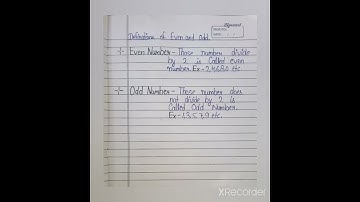 Definations of Even and odd.
Even Number - Those number divide
by 2 is called even
number. Ex - 2,4,6,8,0 etc.
Odd Number - Those number does
not divide by 2 is
called Odd Number.
Ex - 1,3,5,7,9 etc.
XRecorder